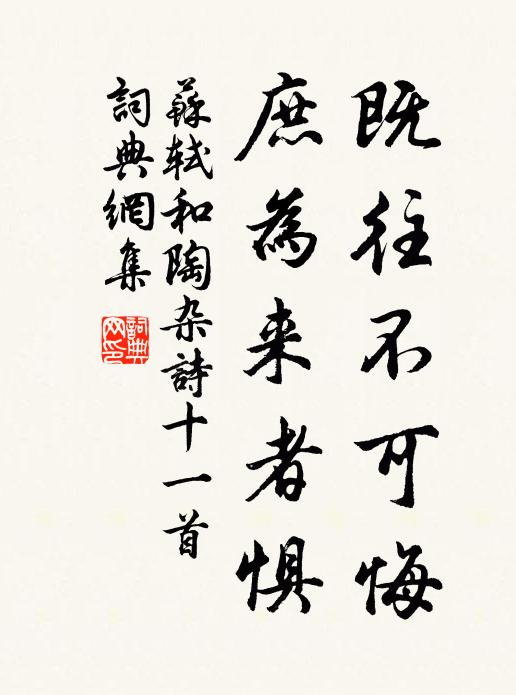 既往不可悔
庶為来者惧
蘇軾和陶杂詩十一首
詞典網集
詞典网印